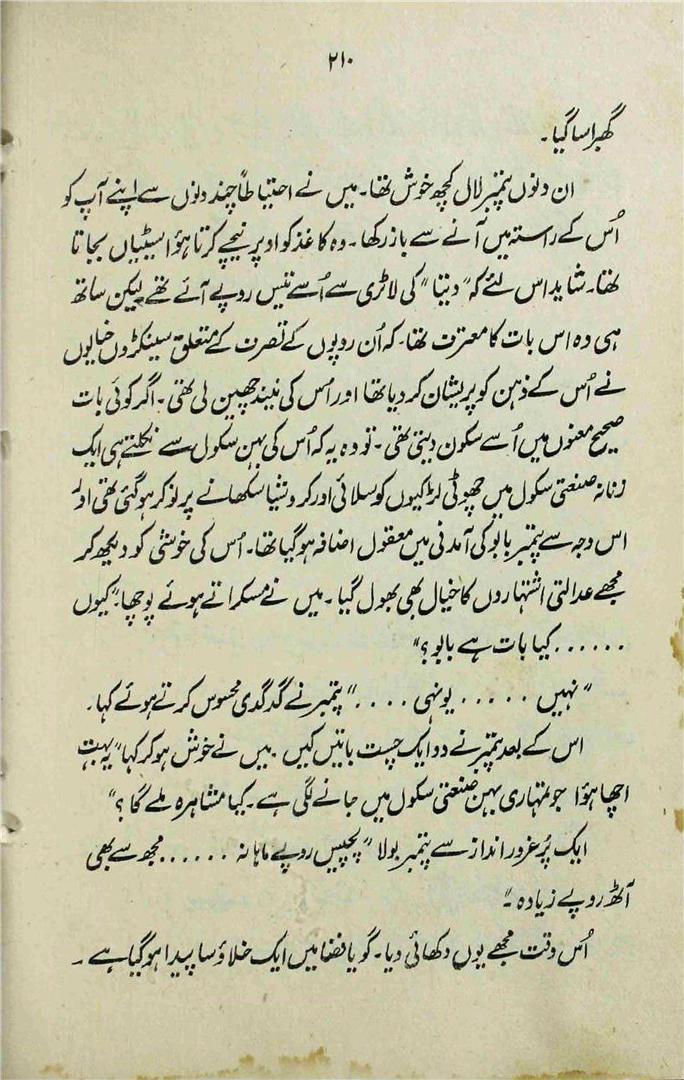 ۲۱۰
گھبرا سا گیا۔
ان دنوں پتمبر لال کچھ خوش تھا۔ میں نے احتیاطاً چند دنوں سے اپنے آپ کو
اُس کے راستہ میں آنے سے باز رکھا۔ وہ کاغذ کو اوپر نیچے کرتا ہؤا سیٹیاں بجاتا
تھا۔ شاید اس لئے کہ "دنیتا" کی لاٹری سے اُسے تئیس روپے آئے تھے لیکن ساتھ
ہی وہ اس بات کا معترف تھا۔ کہ اُن روپوں کے تصرف کے متعلق سینکڑوں خیالوں
نے اُس کے ذہن کو پریشان کر دیا تھا اور اُس کی نیند چھین لی تھی۔ اگر کوئی بات
صحیح معنوں میں اُسے سکون دیتی تھی۔ تو وہ یہ کہ اُس کی بہن سکول سے نکلتے ہی ایک
زنانہ صنعتی سکول میں چھوٹی لڑکیوں کو سلائی اور کروشیا سکھانے پر نوکر ہو گئی تھی اور
اس وجہ سے پتمبر بابو کی آمدنی میں معقول اضافہ ہو گیا تھا۔ اُس کی خوشی کو دیکھ کر
مجھے عدالتی اشتہاروں کا خیال بھی بھول گیا۔ میں نے مسکراتے ہوئے پوچھا۔ "کیوں
...... کیا بات ہے بابو؟"
"نہیں ..... یونہی ...." پتمبر نے گدگدی محسوس کرتے ہوئے کہا۔
اس کے بعد پتمبر نے دو ایک چست باتیں کیں۔ میں نے خوش ہو کر کہا "یہ بہت
اچھا ہؤا جو تمہاری بہن صنعتی سکول میں جانے لگی ہے۔ کیا مشاہرہ ملے گا؟"
ایک پُرغرور انداز سے پتمبر بولا "پچیس روپے ماہانہ ...... مجھ سے بھی
آٹھ روپے زیادہ۔"
اُس وقت مجھے یوں دکھائی دیا۔ گویا فضا میں ایک خلاؤ سا پیدا ہو گیا ہے۔